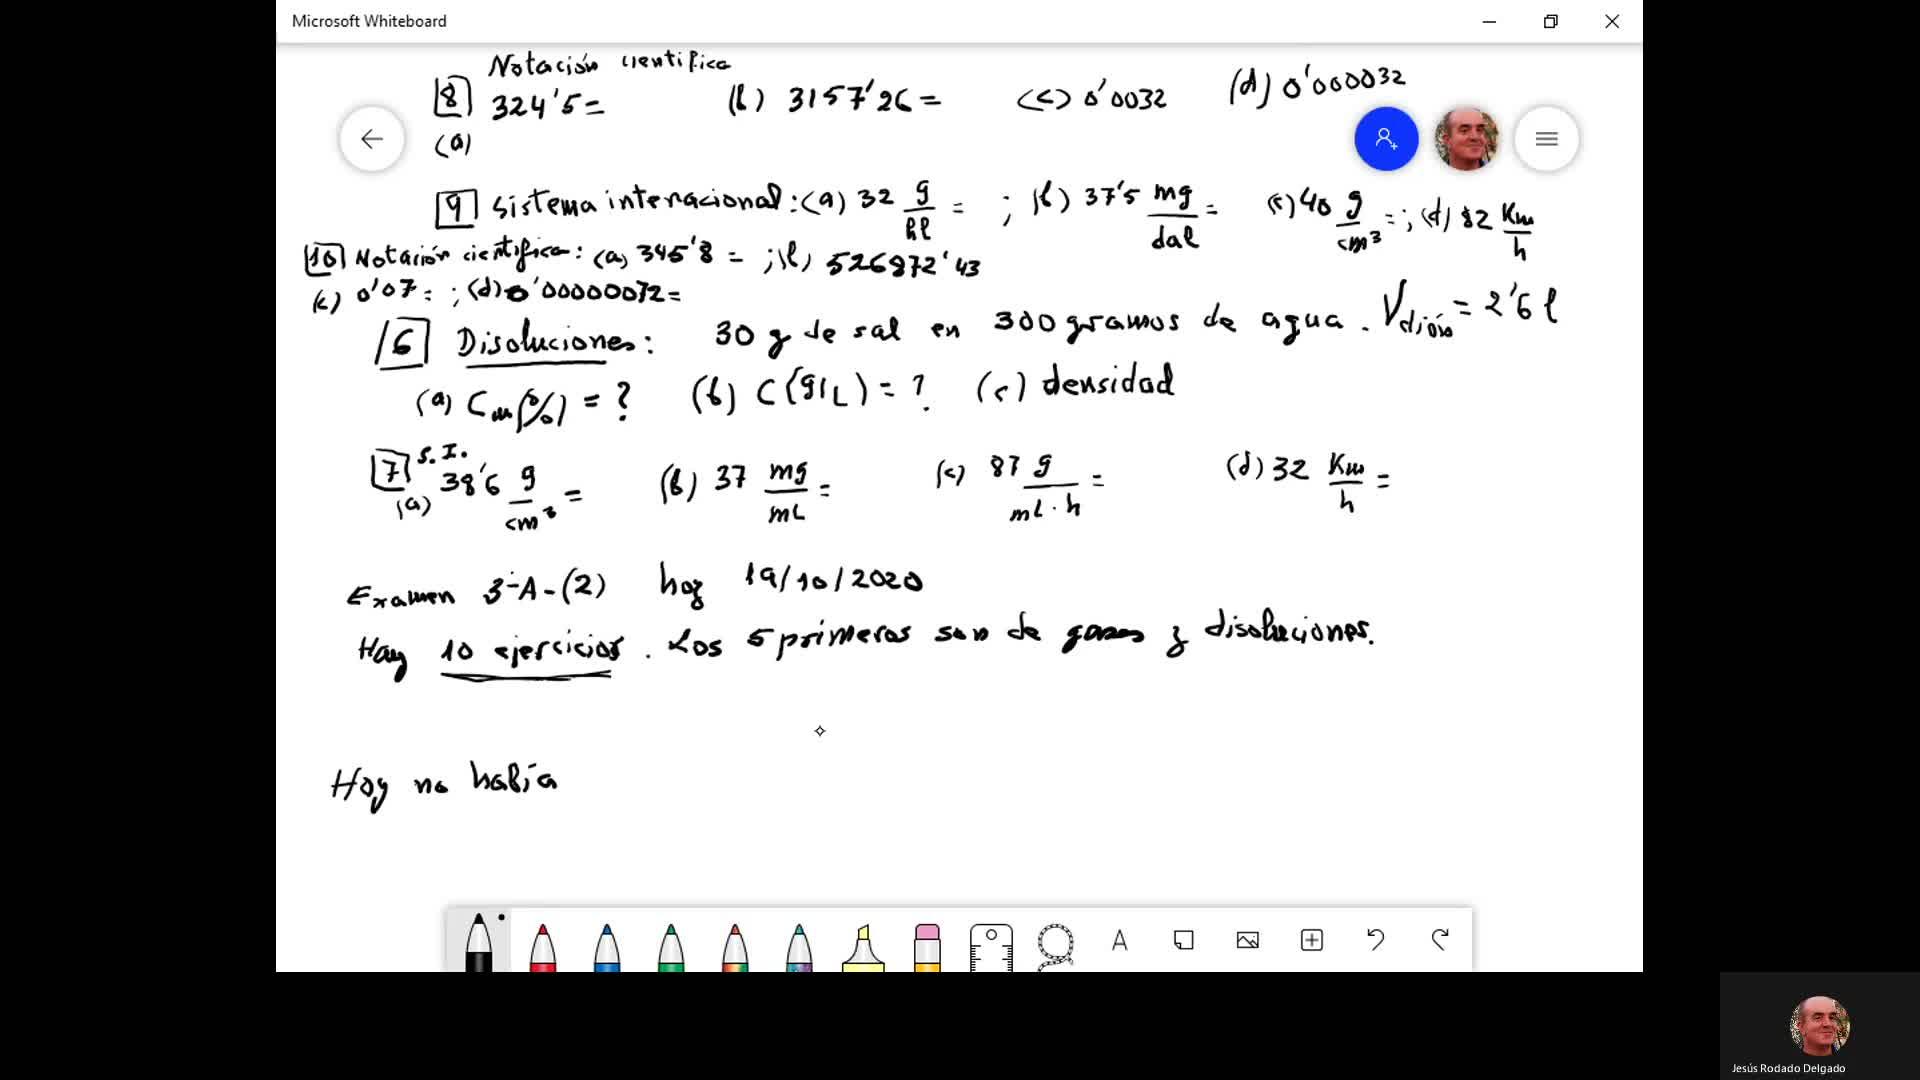 Microsoft Whiteboard
Notación científica
8 (a) 324'5 = (b) 3157'26 = (c) 0'0032 (d) 0'000032
9 Sistema internacional: (a) 32 g/hl = ; (b) 37'5 mg/dal = (c) 40 g/cm³ = ; (d) 82 Km/h
10 Notación científica: (a) 345'8 = ; (b) 526872'43
(c) 0'07 = ; (d) 0'00000072 =
6 Disoluciones: 30 g de sal en 300 gramos de agua. Vdión = 2'6 l
(a) Cm(%) = ? (b) C(g/L) = ? (c) densidad
7 S.I. (a) 38'6 g/cm³ = (b) 37 mg/mL = (c) 87 g/mL·h = (d) 32 Km/h =
Examen 3º-A-(2) hoy 19/10/2020
Hay 10 ejercicios. Los 5 primeros son de gases y disoluciones.
Hoy no había
Jesús Rodado Delgado